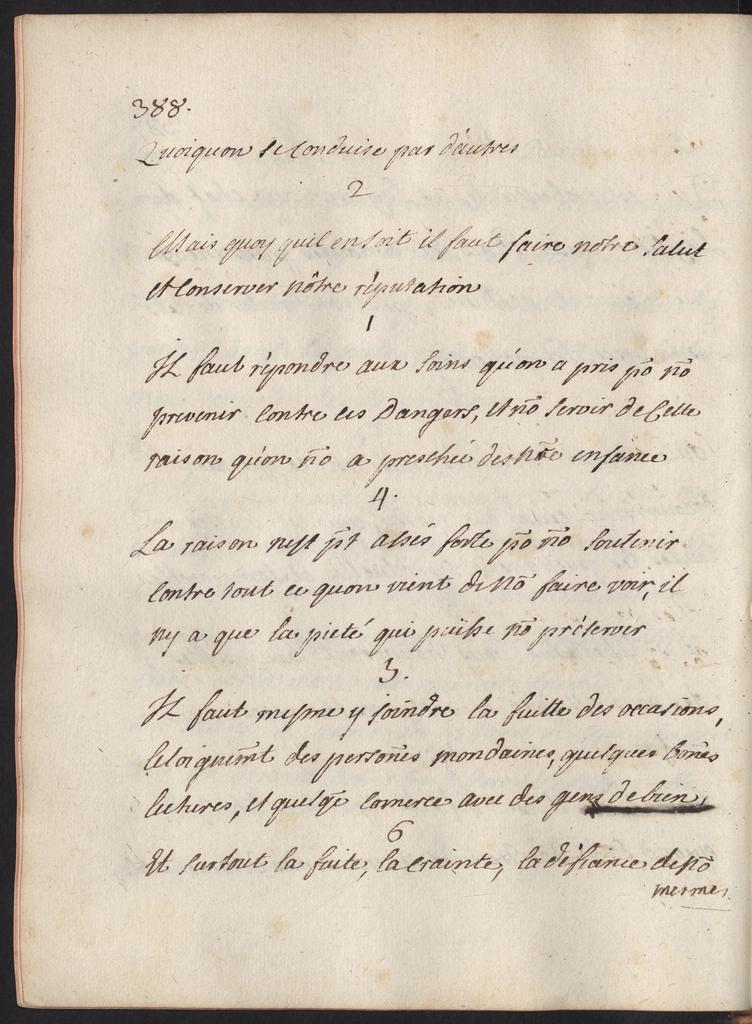 388.
Quoiquon se conduise par d'autres
2
Mais quoy quil en soit il faut faire nôtre salut
et conserver nôtre réputation
1
Il faut répondre aux soins qu'on a pris po no
prevenir contre les Dangers, et no servir de Cette
raison qu'on no a preschée des nre enfance
4.
La raison nest pt assés forte po no soutenir
contre tout ce quon vient de no faire voir, il
ny a que la pieté qui puisse no préserver
3.
Il faut mesme y joindre la fuitte des occasions,
leloignemt des persones mondaines, quelques bones
lectures, et quelqe comerce avec des gens de bien,
6
Et surtout la fuite, la crainte, la défiance de no
mesmes.